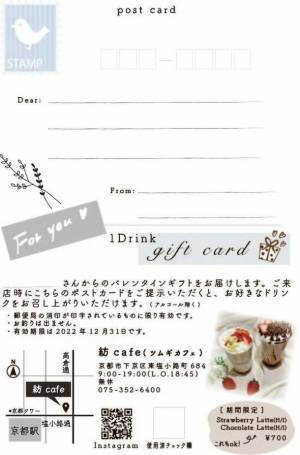 post card
STAMP
Dear:
From:
For you
1Drink
gift card
さんからのバレンタインギフトをお届けします。ご来
店時にこちらのポストカードをご提示いただくと、お好きなドリン
クをお召し上がりいただけます。(アルコール除く)
・郵便局の消印が印字されているものに限り有効です。
・お釣りは出ません。
・有効期限は2022年12月31日です。
高倉通
紡 cafe
●京都タワー
塩小路通
京都駅
紡 cafe(ツムギカフェ)
京都市下京区東塩小路町684
9:00-19:00(L.O.18:45)
無休
075-352-6400
Instagram
使用済チェック欄
[期間限定]
Strawberry Latte(H/I)
Chocolate Latte(H/I)
これもok!
¥700